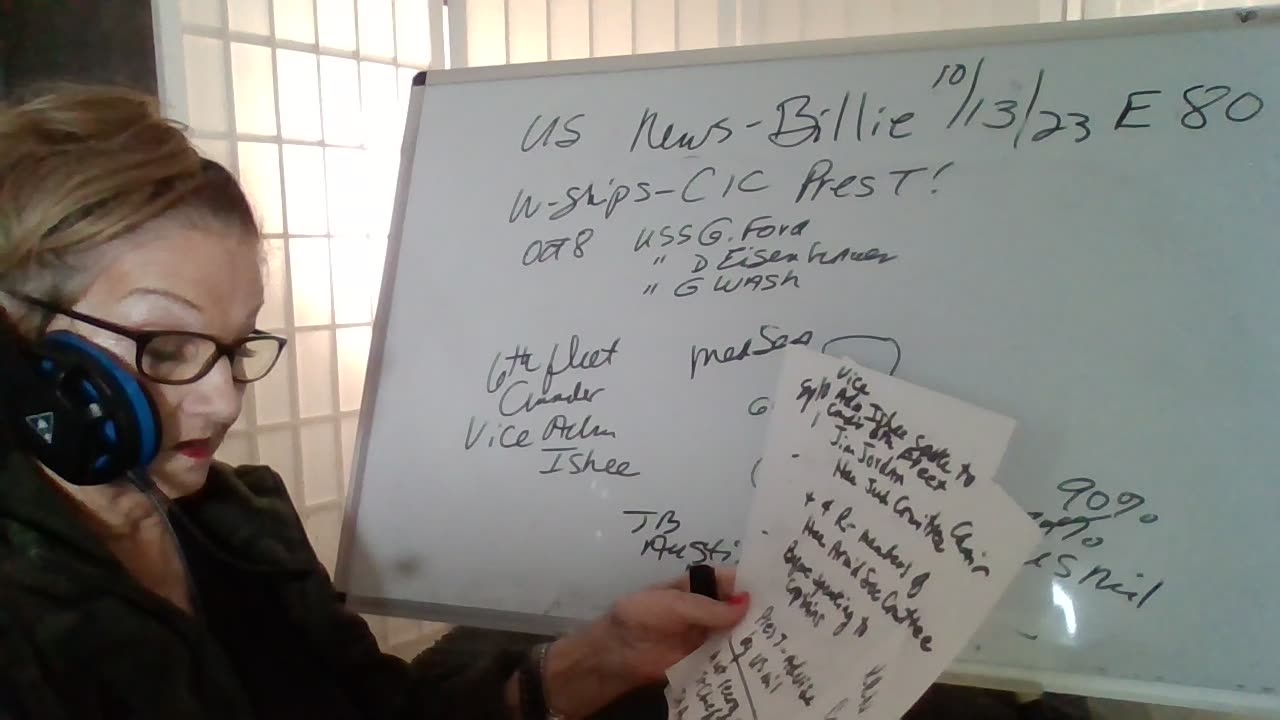 US News-Billie 10/13/23 E 80
W-ships-CIC Pres T!
Oct 8 USS G. Ford
" D Eisenhower
" G WASH
6th fleet
Cmader
Vice Adm
Ishee
Med Sea
JB
Austi
90%
US Mil
Vice
Adm Ishee spoke to
Jim Jordan
Hse Jud Comittee Chair
+ 4 R- members of
Hse Armd Svc Comttee
Before speaking to
Captains
Pres T - advise
by US mil
not